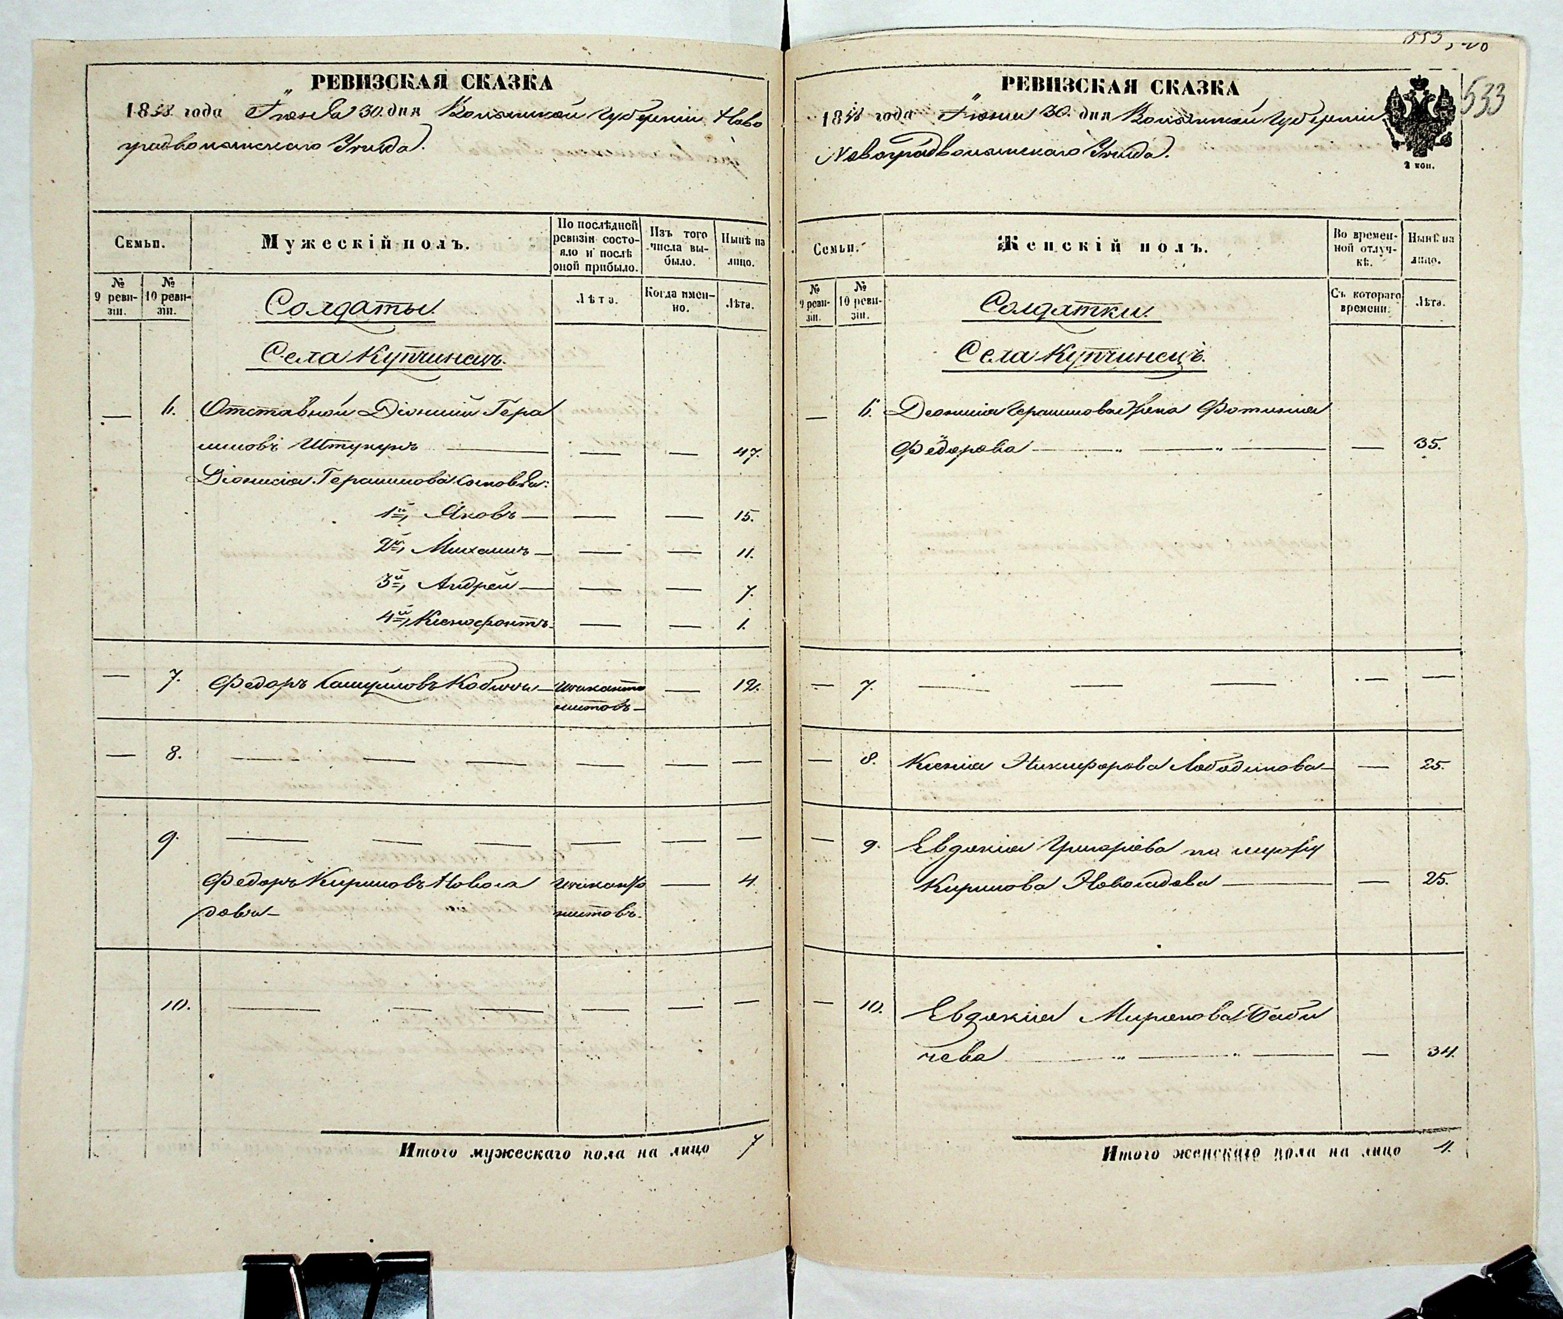 РЕВИЗСКАЯ СКАЗКА
1858 года Іюня 30 дня Волынской Губерніи Ново
градволынскаго Уѣзда.
Семьи.
Мужескій полъ.
По послѣдней ревизіи состояло и послѣ оной прибыло.
Изъ того числа выбыло.
Нынѣ на лицо.
№ 9 ревизіи.
№ 10 ревизіи.
Лѣта.
Когда именно.
Лѣта.
Солдаты.
Села Купчинецъ.
— 6. Отставной Діонисій Гера
симовъ — — 47.
Діонисія Герасимова сыновья:
1й, Яковъ — — — 15.
2й, Михаилъ — — — 11.
3й, Андрей — — — 7.
4й, Ксенофонтъ — — 1.
— 7. Федоръ — 12.
— 8. — — — — — — —
9. — — — — — —
Федоръ Кириловъ Новоса — 4.
довъ —
10. — — — — — —
Итого мужескаго пола на лицо 7
553
533
РЕВИЗСКАЯ СКАЗКА
1858 года Іюня 30 дня Волынской Губерніи
Новоградволынскаго Уѣзда.
2 коп.
Семьи.
Женскій полъ.
Во временной отлучкѣ.
Нынѣ на лицо.
№ 9 ревизіи.
№ 10 ревизіи.
Съ котораго времени.
Лѣта.
Солдатки.
Села Купчинецъ.
— 6. Діонисія Герасимова жена Фотинія
Федорова — " — " — — 35.
— 7. — — — — —
— 8. Ксенія Никифорова — 25.
— 9. Евдокія Григорьева по мужу
Кирилова Новосадова — — 25.
— 10. Евдокія Миронова Баби
чева — " — " — — 34.
Итого женскаго пола на лицо 4.